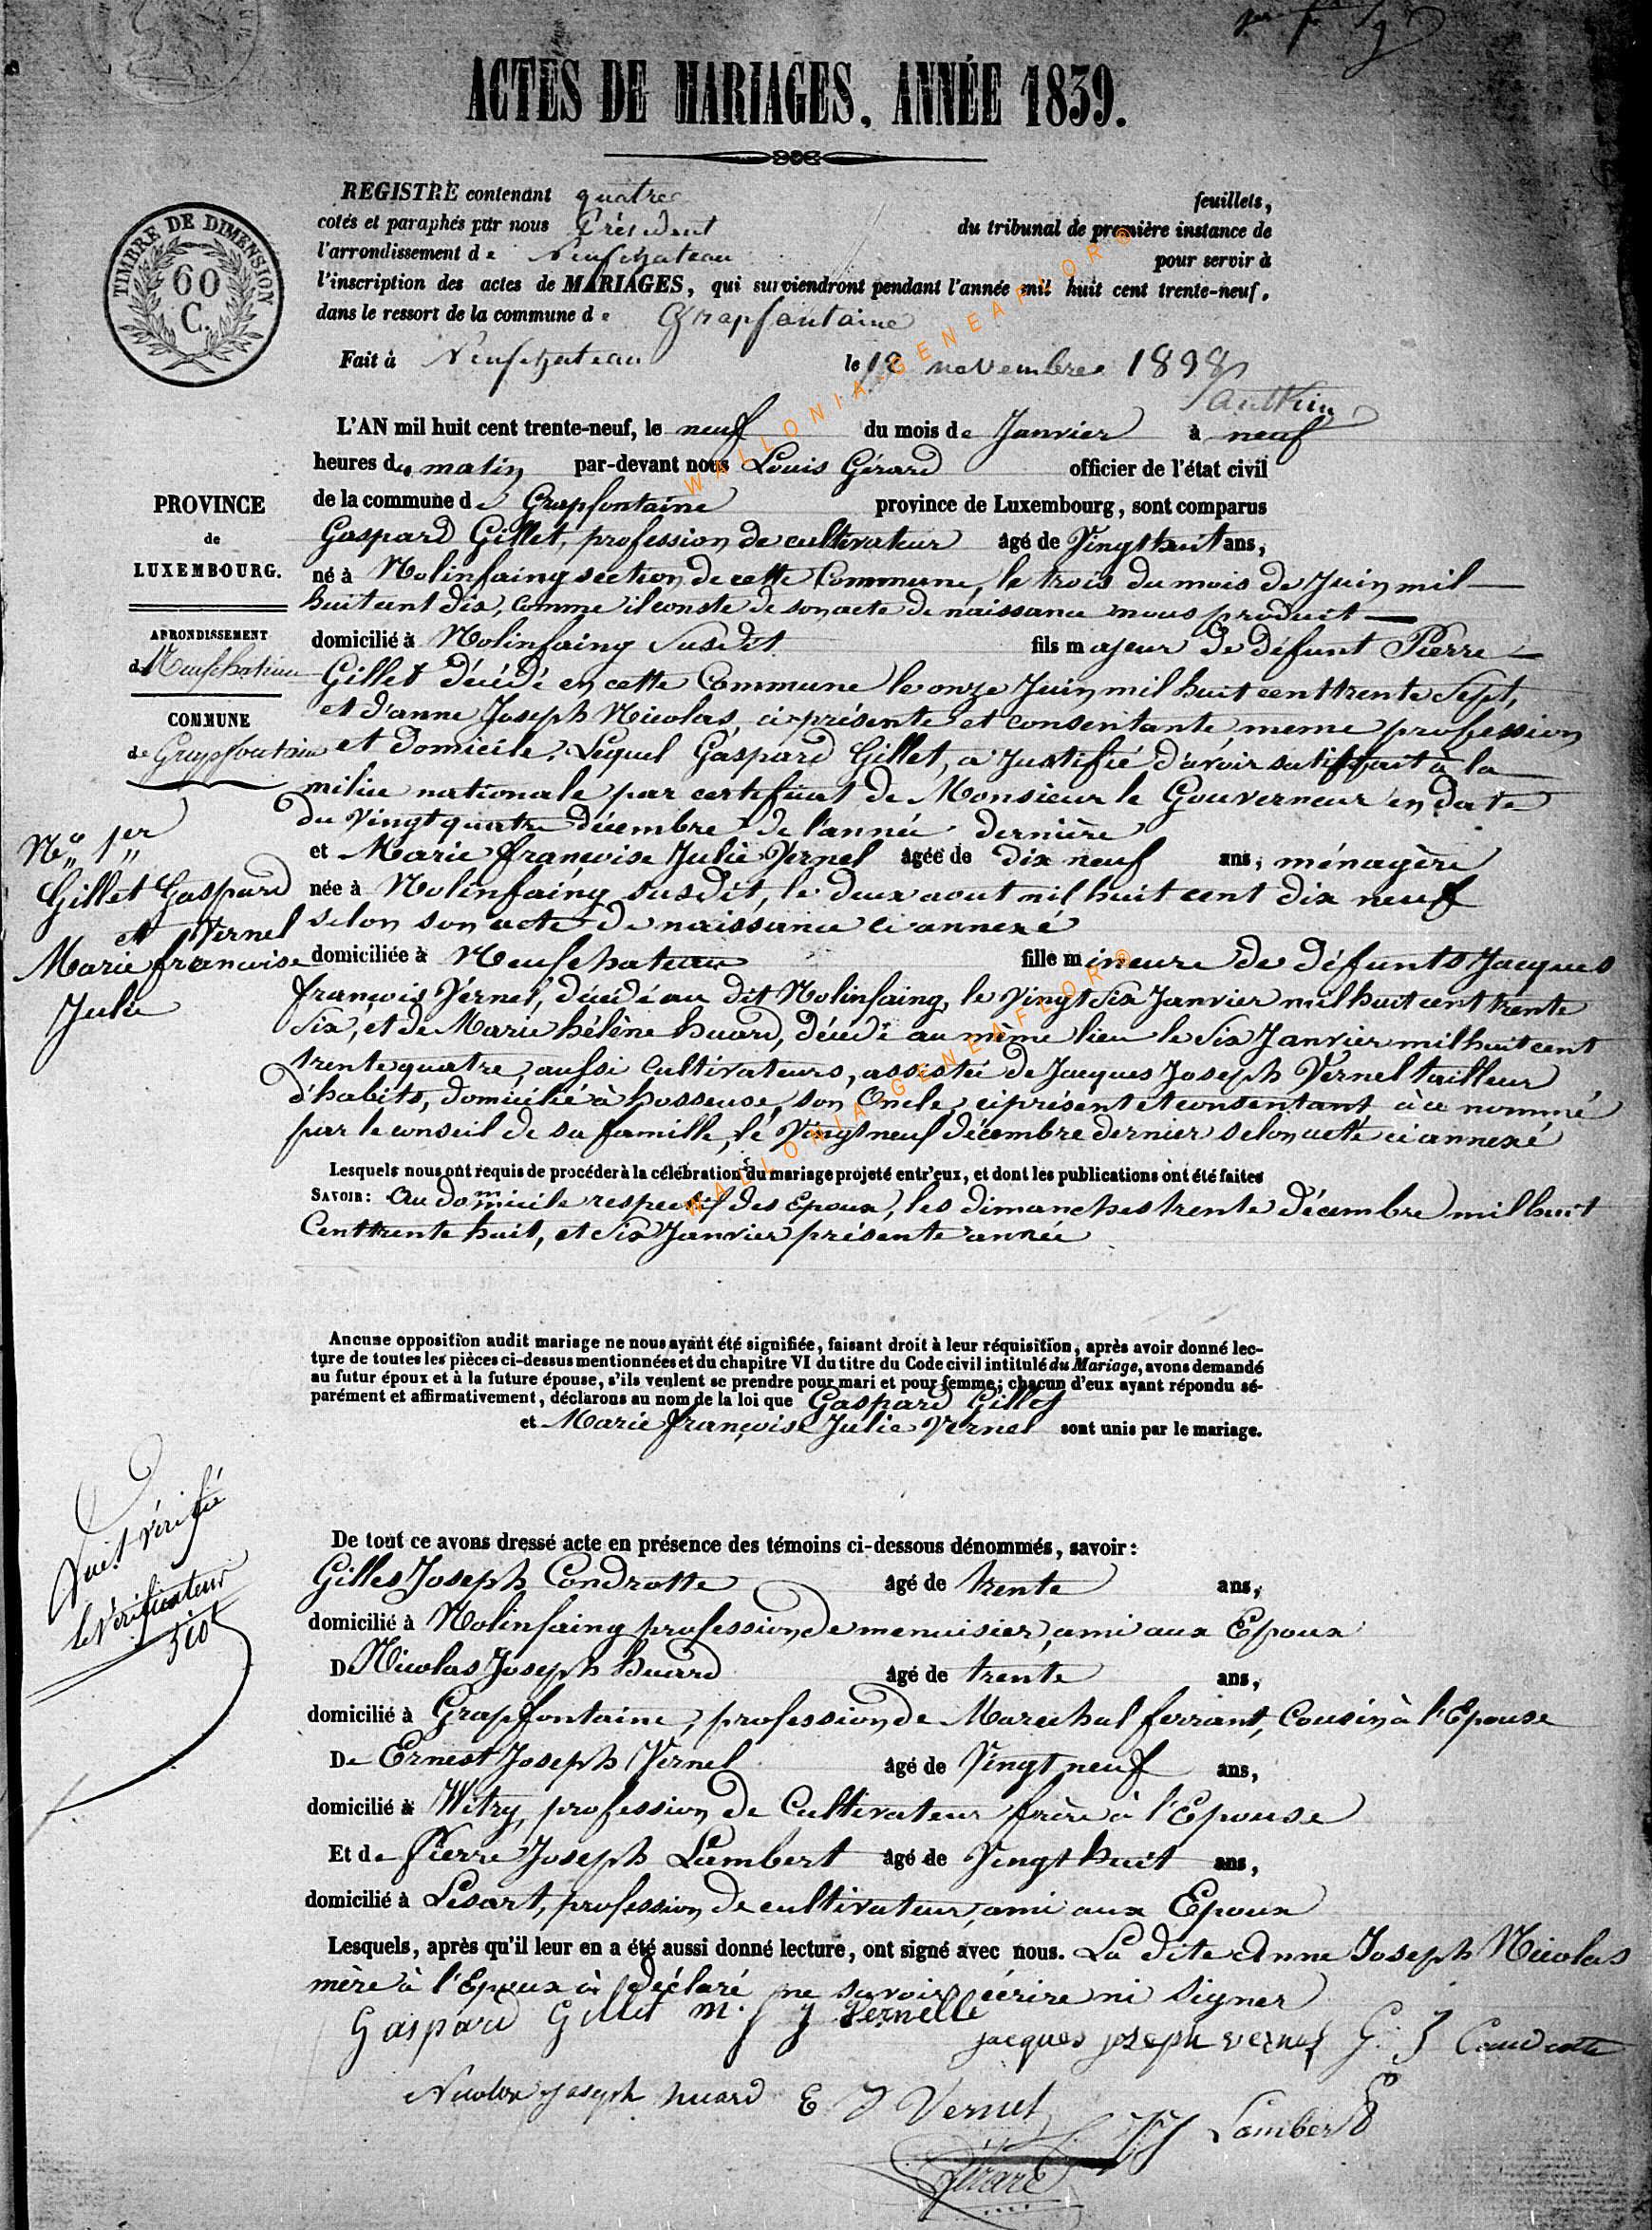 ACTES DE MARIAGES, ANNÉE 1839.
REGISTRE contenant quatre feuillets,
cotés et paraphés par nous Président du tribunal de première instance de
l'arrondissement de Neufchateau pour servir à
l'inscription des actes de MARIAGES, qui surviendront pendant l'année mil huit cent trente-neuf,
dans le ressort de la commune de Grapfontaine
Fait à Neufchateau le 12 novembre 1838
TIMBRE DE DIMENSION
60
C.
L'AN mil huit cent trente-neuf, le neuf du mois de Janvier à neuf
heures du matin par-devant nous Louis Gérard officier de l'état civil
de la commune de Grapfontaine province de Luxembourg, sont comparus
Gaspard Gillet, profession de cultivateur âgé de Vingt huit ans,
né à Molinfaing section de cette Commune, le trois du mois de Juin mil
huit cent dix, comme il conste de son acte de naissance nous produit
domicilié à Molinfaing Susdit fils majeur de défunt Pierre
Gillet décédé en cette Commune le onze Juin mil huit cent trente Sept,
et d'anne Joseph Nicolas ci-présente et consentante meme profession
et domicile. Lequel Gaspard Gillet, a Justifié d'avoir satisfait à la
milice nationale par certificat de Monsieur le Gouverneur en date
du Vingt quatre décembre de l'année dernière
et Marie françoise Julie Vernel âgée de dix neuf ans, ménagère
née à Molinfaing susdit, le deux aout mil huit cent dix neuf
selon son acte de naissance ci annexé
domiciliée à Neufchateau fille mineure de défunts Jacques
françois Vernel, décédé au dit Molinfaing, le Vingt Six Janvier mil huit cent trente
Six, et de Marie hélène huard, décédé au même lieu le Six Janvier mil huit cent
trente quatre, aussi Cultivateurs, assistée de Jacques Joseph Vernel tailleur
d'habits, domicilié à hosseuse, son Oncle, ci présent et consentant, à ce nommé
par le conseil de sa famille, le Vingt neuf décembre dernier selon acte ci annexé
Lesquels nous ont requis de procéder à la célébration du mariage projeté entr'eux, et dont les publications ont été faites
SAVOIR: Au domicile respectif des Epoux, les dimanches trente décembre mil huit
Cent trente huit, et Six Janvier présente année
Ancune opposition audit mariage ne nous ayant été signifiée, faisant droit à leur réquisition, après avoir donné lec-
ture de toutes les pièces ci-dessus mentionnées et du chapitre VI du titre du Code civil intitulé du Mariage, avons demandé
au futur époux et à la future épouse, s'ils veulent se prendre pour mari et pour femme; chacun d'eux ayant répondu sé-
parément et affirmativement, déclarons au nom de la loi que Gaspard Gillet
et Marie françoise Julie Vernel sont unis par le mariage.
De tout ce avons dressé acte en présence des témoins ci-dessous dénommés, savoir:
Gilles Joseph Condrotte âgé de trente ans,
domicilié à Molinfaing profession de menuisier, ami aux Epoux
De Nicolas Joseph huard âgé de trente ans,
domicilié à Grapfontaine, profession de Marechal ferrant, Cousin à l'Epouse
De Ernest Joseph Vernel âgé de Vingt neuf ans,
domicilié à Witry, profession de Cultivateur frère à l'Epouse
Et de Pierre Joseph Lambert âgé de Vingt huit ans,
domicilié à Lesart, profession de cultivateur, ami aux Epoux
Lesquels, après qu'il leur en a été aussi donné lecture, ont signé avec nous. La dite Anne Joseph Nicolas
mère à l'Epoux à déclaré ne savoir écrire ni signer
Gaspard Gillet m. f J Vernelle
jacques joseph vernel G. J Condrotte
Nicolas joseph huard E J Vernel
PJ Lambert
Gérard
PROVINCE
de
LUXEMBOURG.
ARRONDISSEMENT
de Neufchateau
COMMUNE
de Grapfontaine
No 1er
Gillet Gaspard
et Vernel
Marie francoise
Julie
Vu et vérifié
le Vérificateur
WALLONIA-GENEAFLOR ©
WALLONIA-GENEAFLOR ©